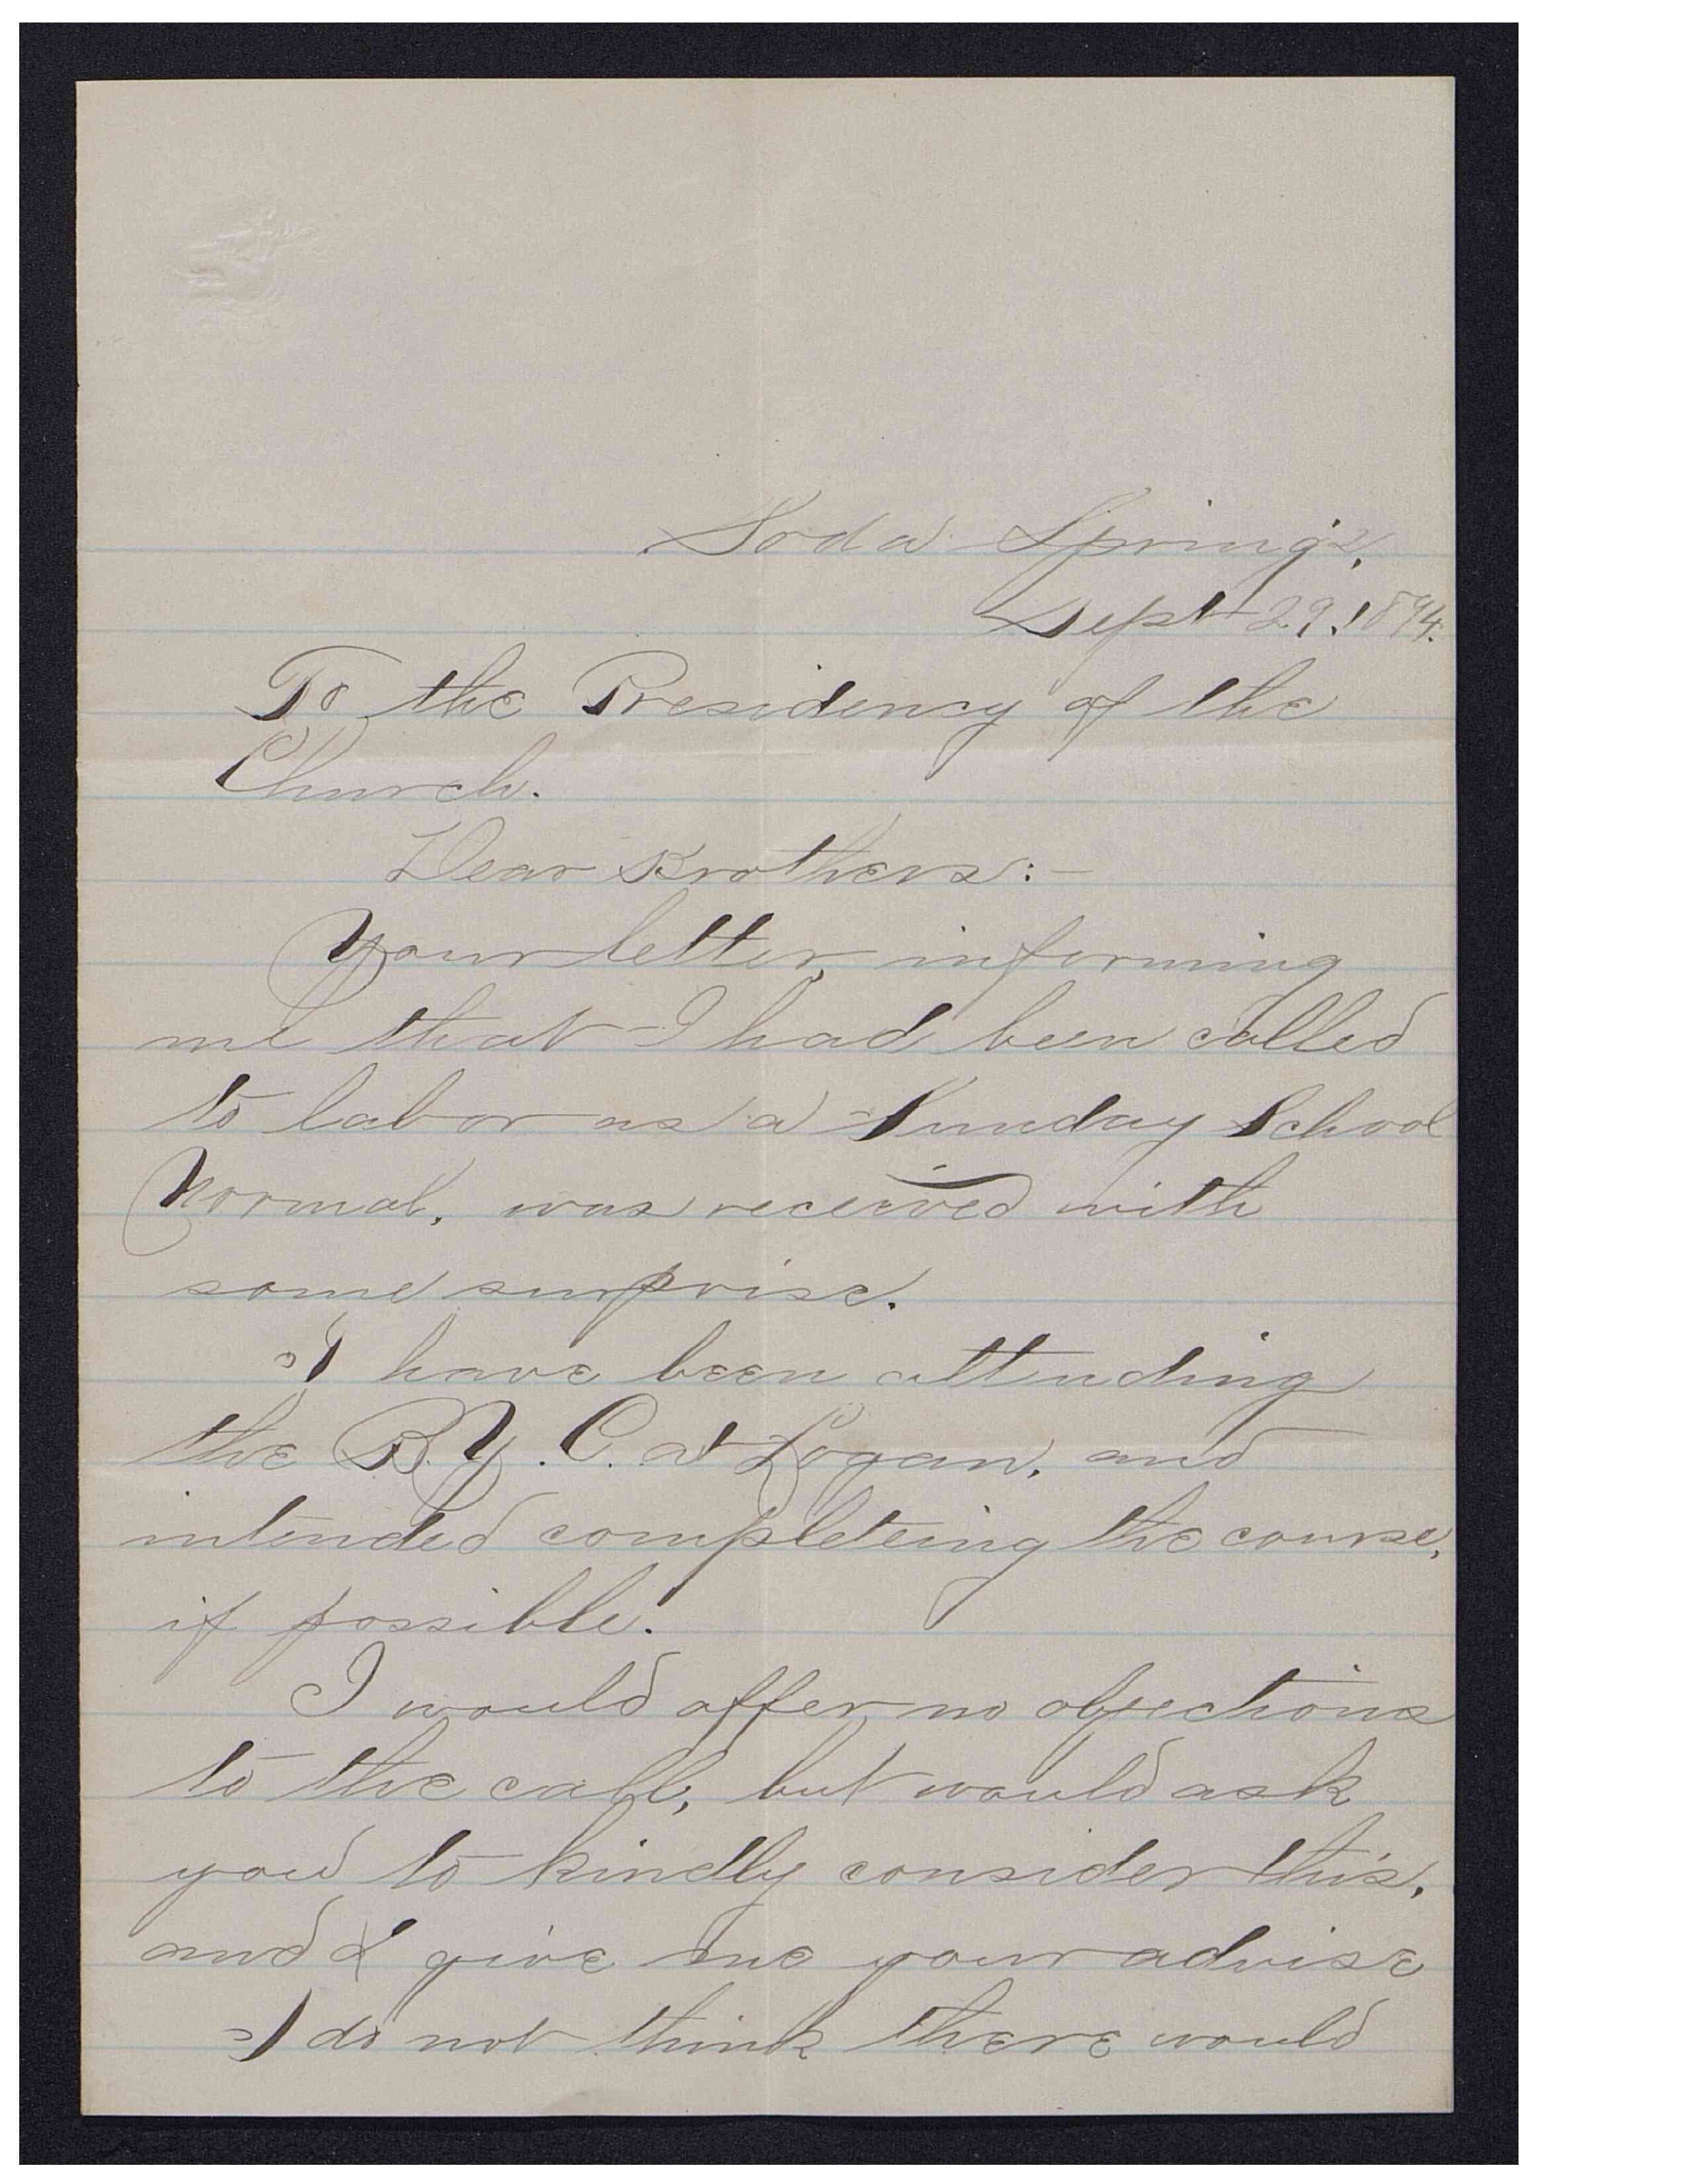 Soda Springs,
Sept 29, 1894.
To the Presidency of the
Church.
Dear Brothers:-
Your letter, informing
me that I had been called
to labor as a Sunday School
Normal, was received with
some surprise.
I have been attending
the B.Y.C. at Logan, and
intended completeing the course,
if possible.
I would offer no objections
to the call, but would ask
you to kindly consider this,
and & give me your advise
I do not think there would